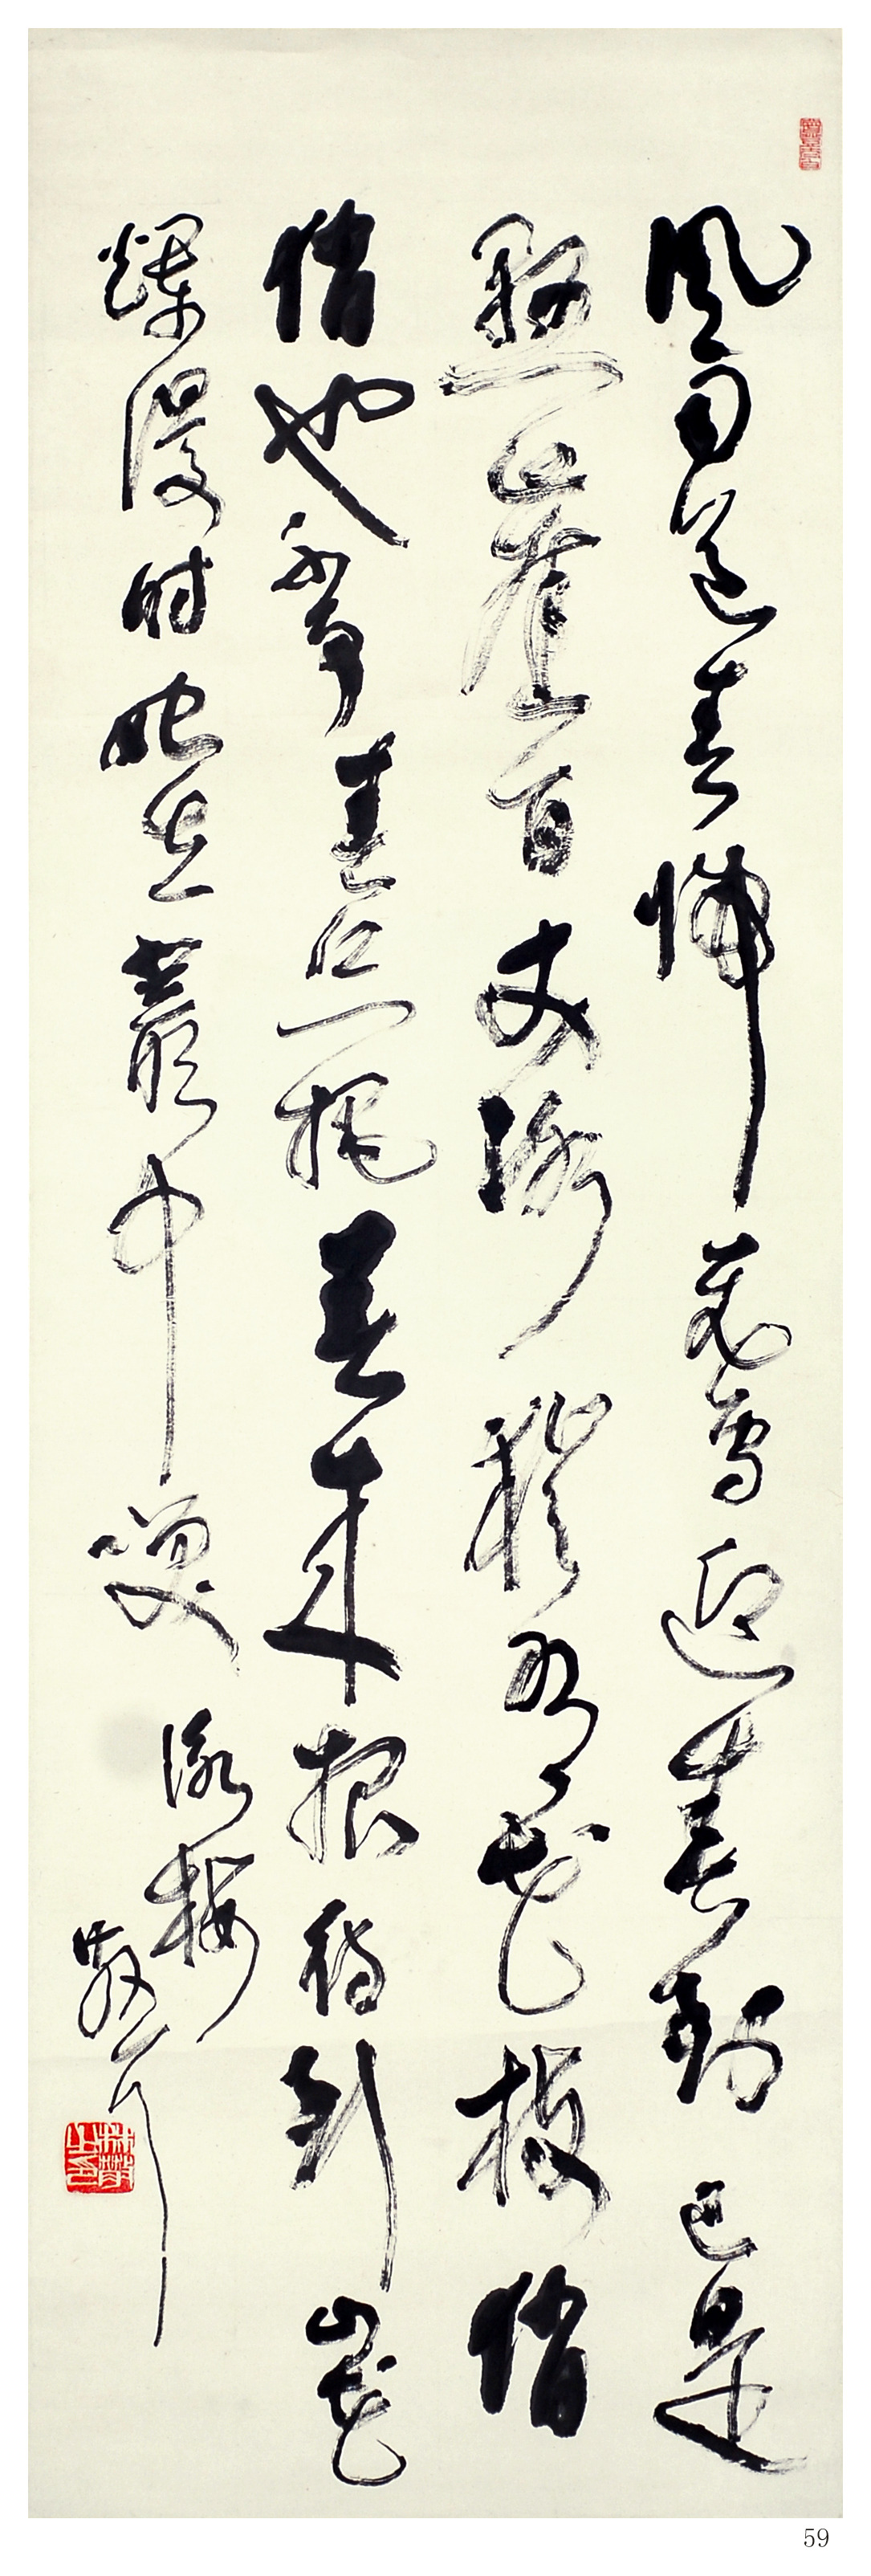 风雨送春归飞雪迎春到已是
悬崖百丈冰犹有花枝俏
俏也不争春只把春来报待到山花
烂漫时她在丛中笑
咏梅
散耳
林散之印
59